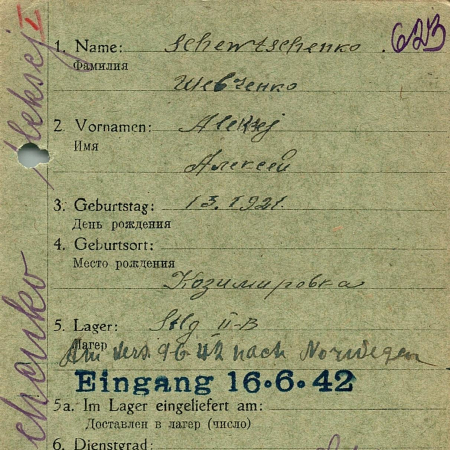 I
1. Name: Schewtschenko 623
Фамилия
Шевченко
2. Vornamen: Aleksej
Имя
Алексей
3. Geburtstag: 1 3. 1921.
День рождения
4. Geburtsort:
Место рождения
Козимировка
5. Lager: Stlg II-B
Лагер
9 6 42 nach Norwegen
Eingang 16·6·42
5a. Im Lager eingeliefert am:
Доставлен в лагер (число)
6. Dienstgrad:
chenko Aleksej